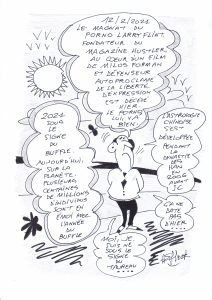 12/2/2021
LE MAGNAT DU
PORNO LARRY FLINT,
FONDATEUR DU
MAGAZINE HUSTLER
AU CŒUR D'UN FILM
DE MILOS FORMAN
ET DÉFENSEUR
AUTOPROCLAMÉ
DE LA LIBERTÉ
D'EXPRESSION
EST DÉCÉDÉ
HIER.
LE PORNO,
LUI, VA
BIEN!
2021
SOUS
LE
SIGNE
DU
BUFFLE.
AUJOURD'HUI,
SUR LA
PLANÈTE,
PLUSIEURS
CENTAINES
DE MILLIONS
D'INDIVIDUS
SONT EN
ÉMOI AVEC
L'ANNÉE
DU
BUFFLE
L'ASTROLOGIE
CHINOISE
S'EST
DÉVELOPPÉE
PENDANT
LA
DYNASTIE
DES
HAN
EN
200 AV
JC
ÇA NE
DATE
PAS
D'HIER
MOI, JE
SUIS NÉ
SOUS LE
SIGNE
DU
TAUREAU